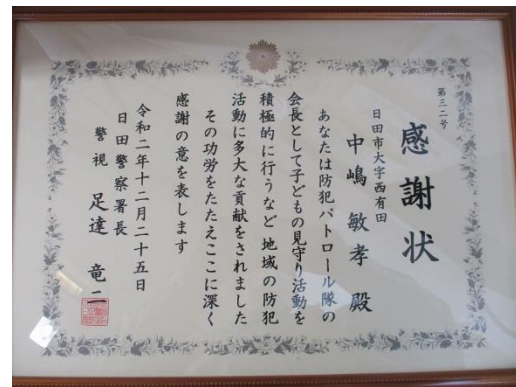 第三二号
感謝状
日田市大字西有田
中嶋敏孝殿
あなたは防犯パトロール隊の
会長として子どもの見守り活動を
積極的に行うなど地域の防犯
活動に多大な貢献をされました
その功労をたたえここに深く
感謝の意を表します
令和二年十二月二十五日
日田警察署長
警視 足達 竜